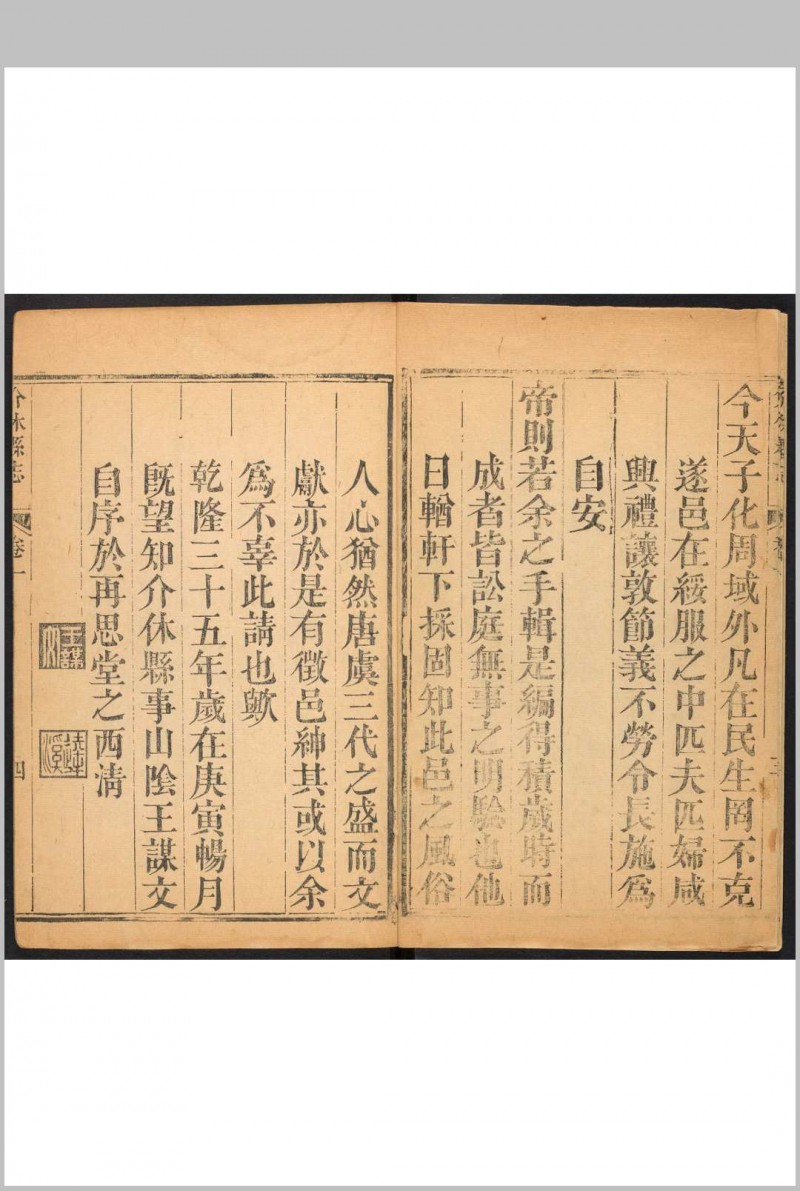 今天子化周域外凡在民生罔不克
遂邑在綏服之中匹夫匹婦咸
興禮讓敦節義不勞令長施爲
自安
帝則若余之手輯是編得積歲時而
成者皆訟庭無事之明驗也他
日輶軒下採固知此邑之風俗
三
人心猶然唐虞三代之盛而文
獻亦於是有徵邑紳其或以余
爲不辜此請也歟
乾隆三十五年歲在庚寅暢月
旣望知介休縣事山陰王謀文
自序於再思堂之西淸
介休縣志
卷一
四